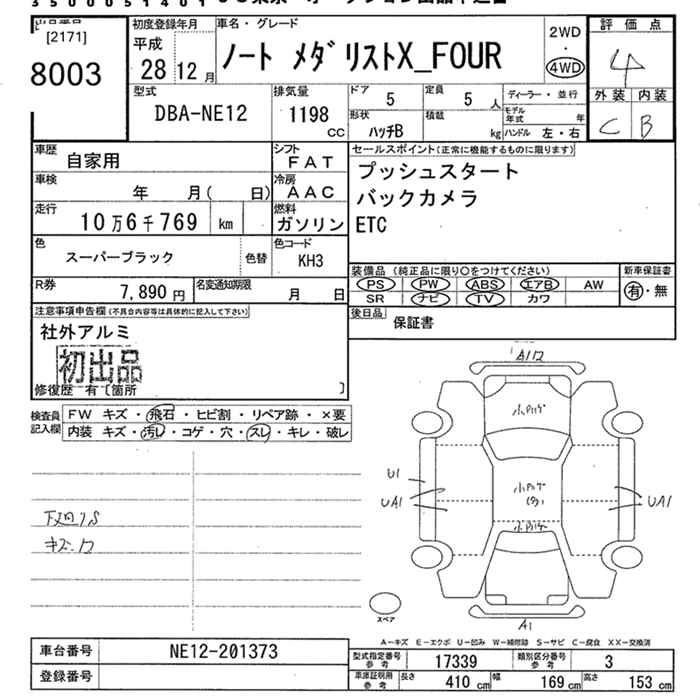 出品番号
[2171]
8003
初度登録年月
平成
28 12 月
車名・グレード
ノート メダリストX_FOUR
2WD
・
4WD
評価点
4
外装 内装
C B
型式
DBA-NE12
排気量
1198
CC
ドア
5
定員
5 人
形状
ハッチB
積載
kg
ディーラー・並行
モデル
年式 年
ハンドル 左・右
車歴
自家用
シフト
FAT
車検
年 月( 日)
冷房
AAC
走行
10万6千769 km
燃料
ガソリン
色
スーパーブラック
色替
色コード
KH3
R券
7,890 円
名変通知期限
月 日
セールスポイント(正常に機能するものに限ります)
プッシュスタート
バックカメラ
ETC
装備品 (純正品に限り○をつけてください)
PS PW ABS エアB AW
SR ナビ TV カワ
新車保証書
有・無
後日品
保証書
注意事項申告欄(不具合内容等は具体的に記入して下さい)
社外アルミ
初出品
修復歴 有〔箇所 〕
検査員
記入欄
FW キズ・飛石・ヒビ割・リペア跡・×要
内装 キズ・汚レ・コゲ・穴・スレ・キレ・破レ
キズ
U1
UA1
UA1
A1
スペア
A-キズ E-エクボ U-凹み W-補修跡 S-サビ C-腐食 XX-交換済
車台番号
NE12-201373
登録番号
型式指定番号
参考
17339
類別区分番号
参考
3
車庫証明用
参考
長さ
410 cm
幅
169 cm
高さ
153 cm